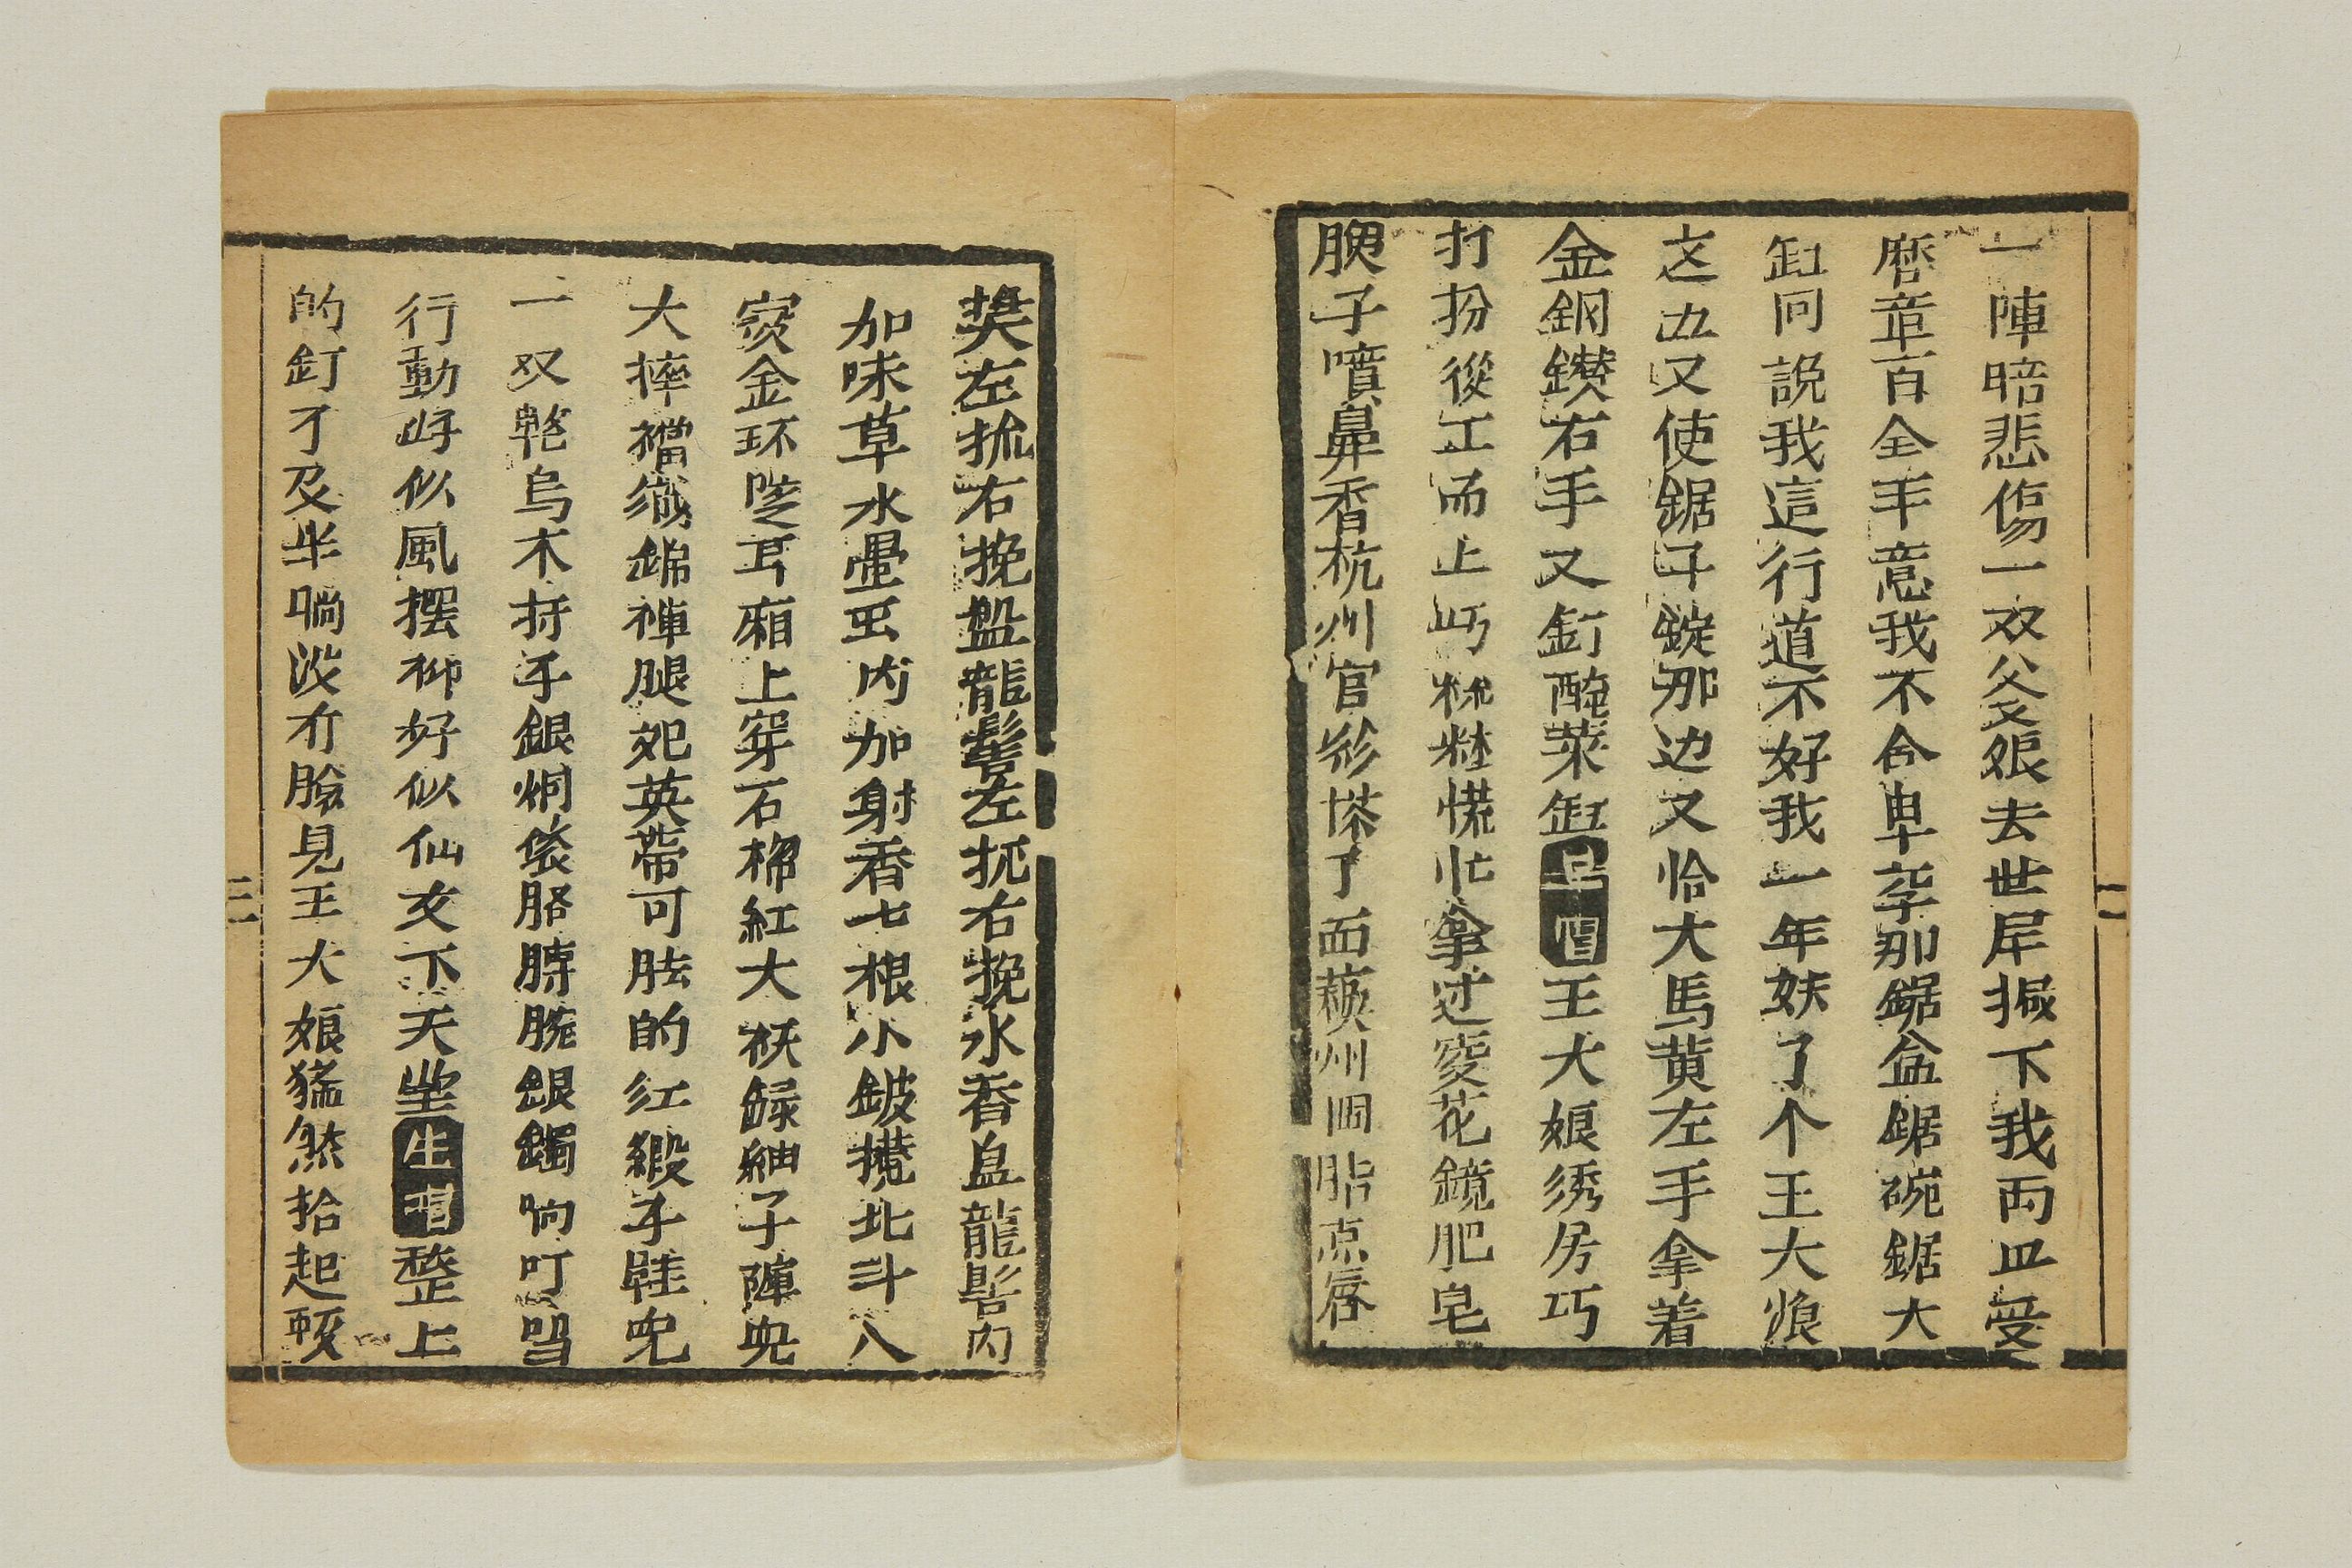 一陣暗悲傷一双父娘去世早搬下我両皿受
磨章百全年意我不合卑李那鋸盆鋸碗鋸大
缸问說我這行道不好我一年妖了个王大娘
这边又使鋸子錠那边又恰大馬黄左手拿着
金鋼鑚右手又釘醃菜缸旦唱王大娘绣房巧
打扮後工而上巧梳粧慌忙拿过菱花鏡肥皂
胰子噴鼻香杭州官粉搽了面蘓州胭脂点唇
左梳右挽盤龍髻左抿右挽水香盘龍髻内
加味草水墨玉内加射香七根小鈹攬北斗八
宝金环墜耳廂上穿石榴紅大袄緑紬子
大襟襠織錦褲腿妃英帶可肢的红緞子鞋兒
一双乾烏木杆子銀烟袋胳膊腕銀鐲响叮噹
行動好似風摆柳好似仙女下天堂生唱整上
的釘才及半晌没有臉見王大娘猛然抬起
二
三